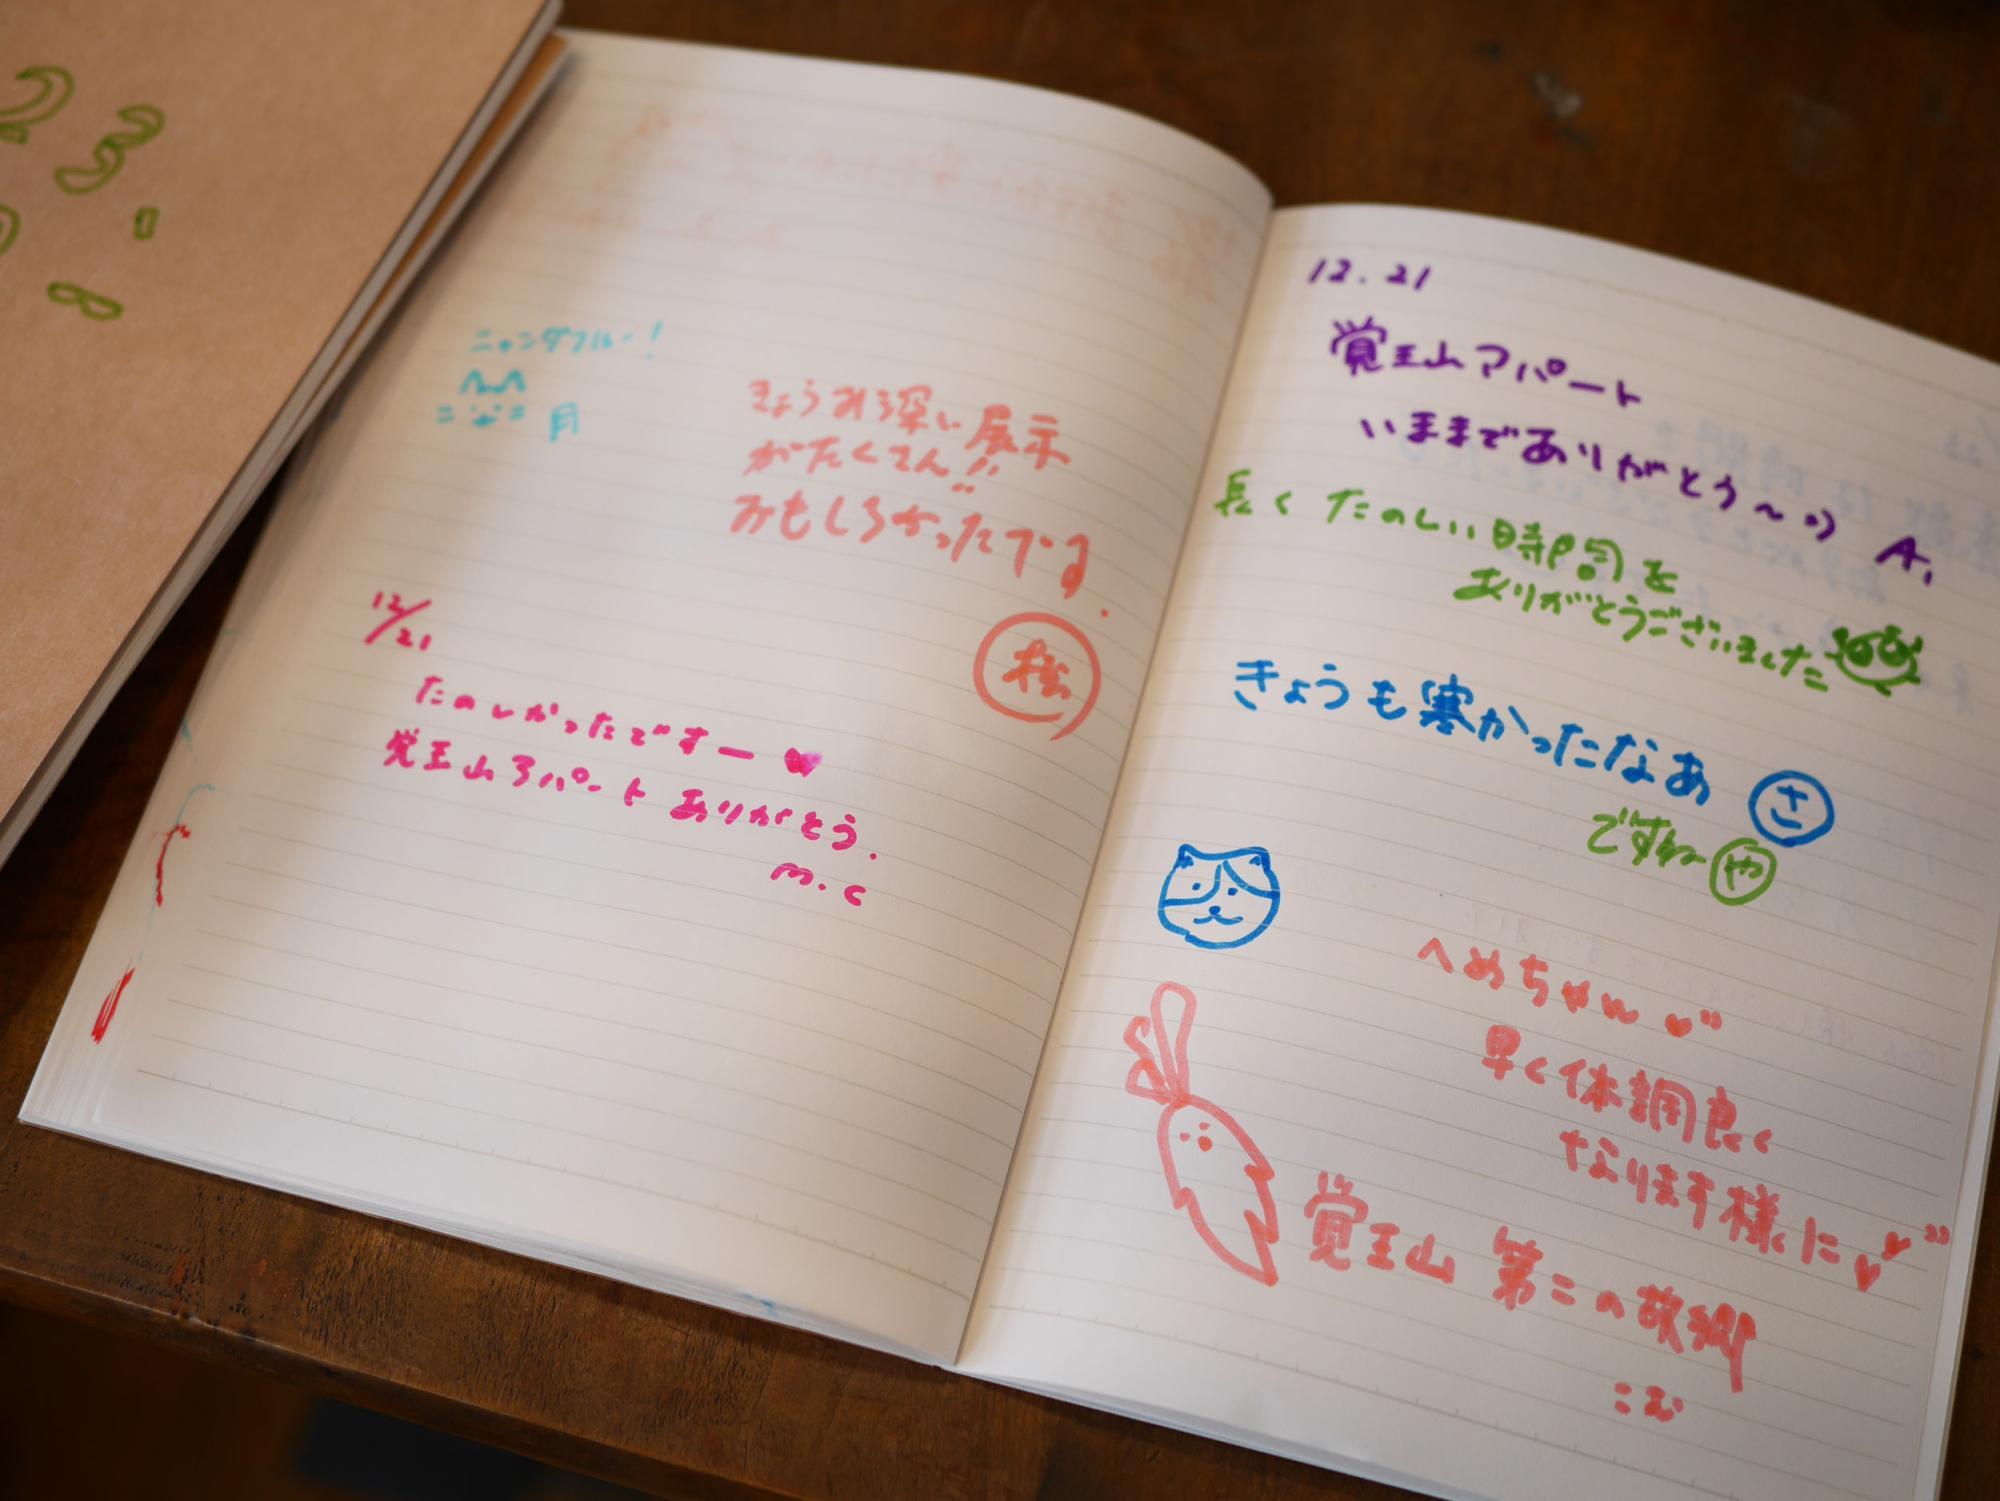 23.
ニャンダフルー!
月
きょうみ深い展示
がたくさん!!
おもしろかったです.
松
12/21
たのしかったでずー
覚王山アパート ありがとう.
m.c
12.21
覚王山アパート
いままでありがとう〜:) A.
長く たのしい時間を
ありがとうございました
きょうも寒かったなあ さ
ですねー や
へめちゃん
早く体調良く
なります様に
覚王山 第二の故郷
こむ